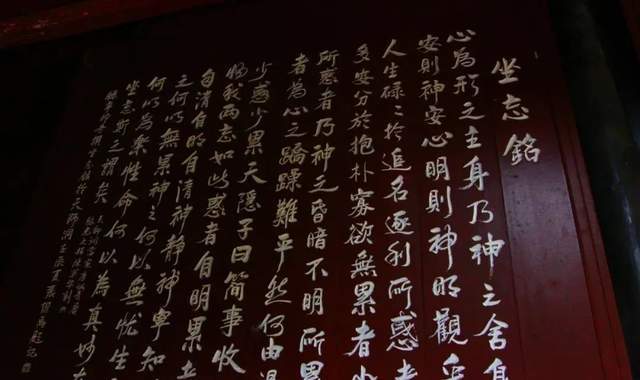 坐忘銘
心為形之主身乃神之舍身
安則神安心明則神明觀乎
人生碌〻於追名逐利所惑者
多安分於抱朴寡欲無累者少
所惑者乃神之昏暗不明所累
者為心之蹻躁難平然何由得
少惑少累天隱子曰簡事收
物我兩忘如此惑者自明累
自清自明自清神靜神寧知
之何以無累神之何以無憂生
何以為素性命何以為真妙在
坐忘斯之謂矣